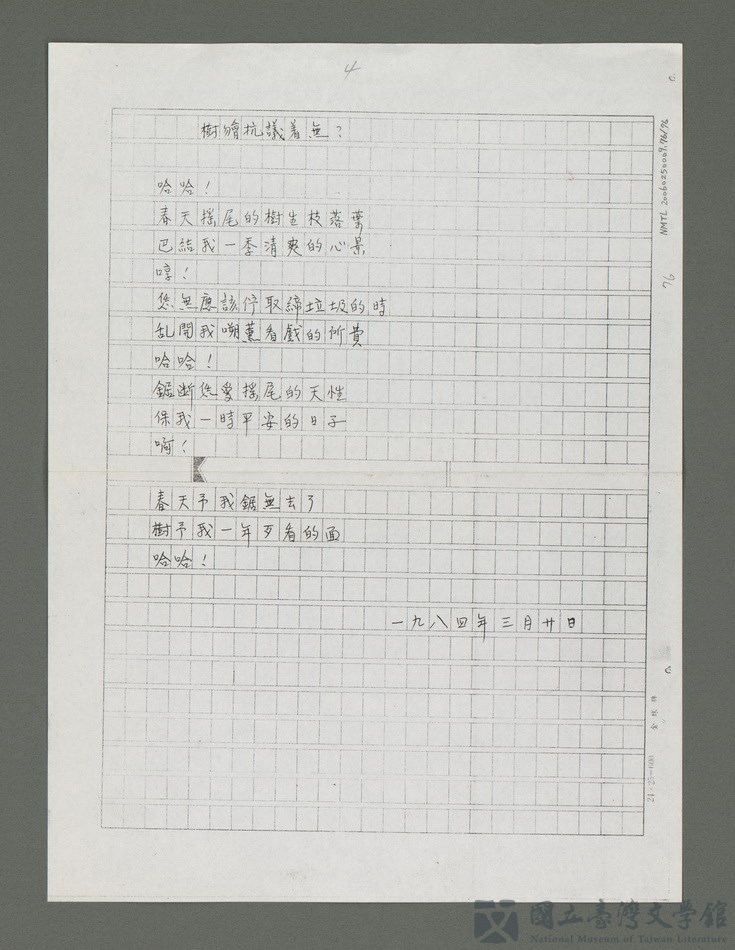 4
樹嬒抗議着無？
哈哈！
春天搖尾的樹生枝落葉
巴結我一季清爽的心景
哼！
恁無應該佇取締垃圾的時
乱開我嘲薰看戲的所費
哈哈！
鋸断恁愛搖尾的天性
保我一時平安的日子
啊！
春天予我鋸無去了
樹予我一年歹看的面
哈哈！
一九八四年三月廿日
NMTL 20060250009.76/76
76
24×25=600
國立臺灣文學館
National Museum of Taiwan Literature